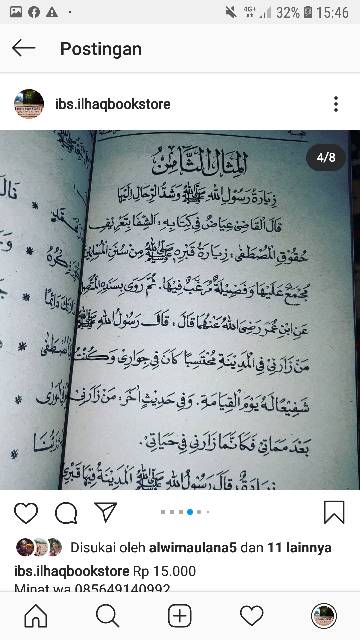 32% 15:46
Postingan
ibs.ilhaqbookstore
4/8
المثال الثامن
زيارة رسول الله ﷺ وشد الرحال إليها
قال القاضي عياض في كتابه: الشفا بتعريف
حقوق المصطفى: زيارة قبره ﷺ من سنن المسلمين
مجمع عليها وفضيلة مرغب فيها. ثم روى بسنده
عن ابن عمر رضي الله عنهما قال: قال رسول الله ﷺ
من زارني في المدينة محتسبا كان في جواري وكنت
شفيعا له يوم القيامة. وفي حديث آخر: من زارني
بعد مماتي فكأنما زارني في حياتي.
قال رسول الله ﷺ المدينة فيها قبري
Disukai oleh alwimaulana5 dan 11 lainnya
ibs.ilhaqbookstore Rp 15.000
Minat wa 085649140992